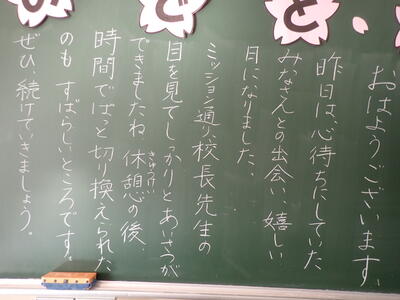 おはようございます。
昨日は、心待ちにしていた
みなさんとの出会い、嬉しい
日になりました。
ミッション通り、校長先生の
目を見てしっかりとあいさつが
できましたね。休憩の後、
きゅうけい
時間でぱっと切り換えられた
のも すばらしいところです。
ぜひ、続けていきましょう。